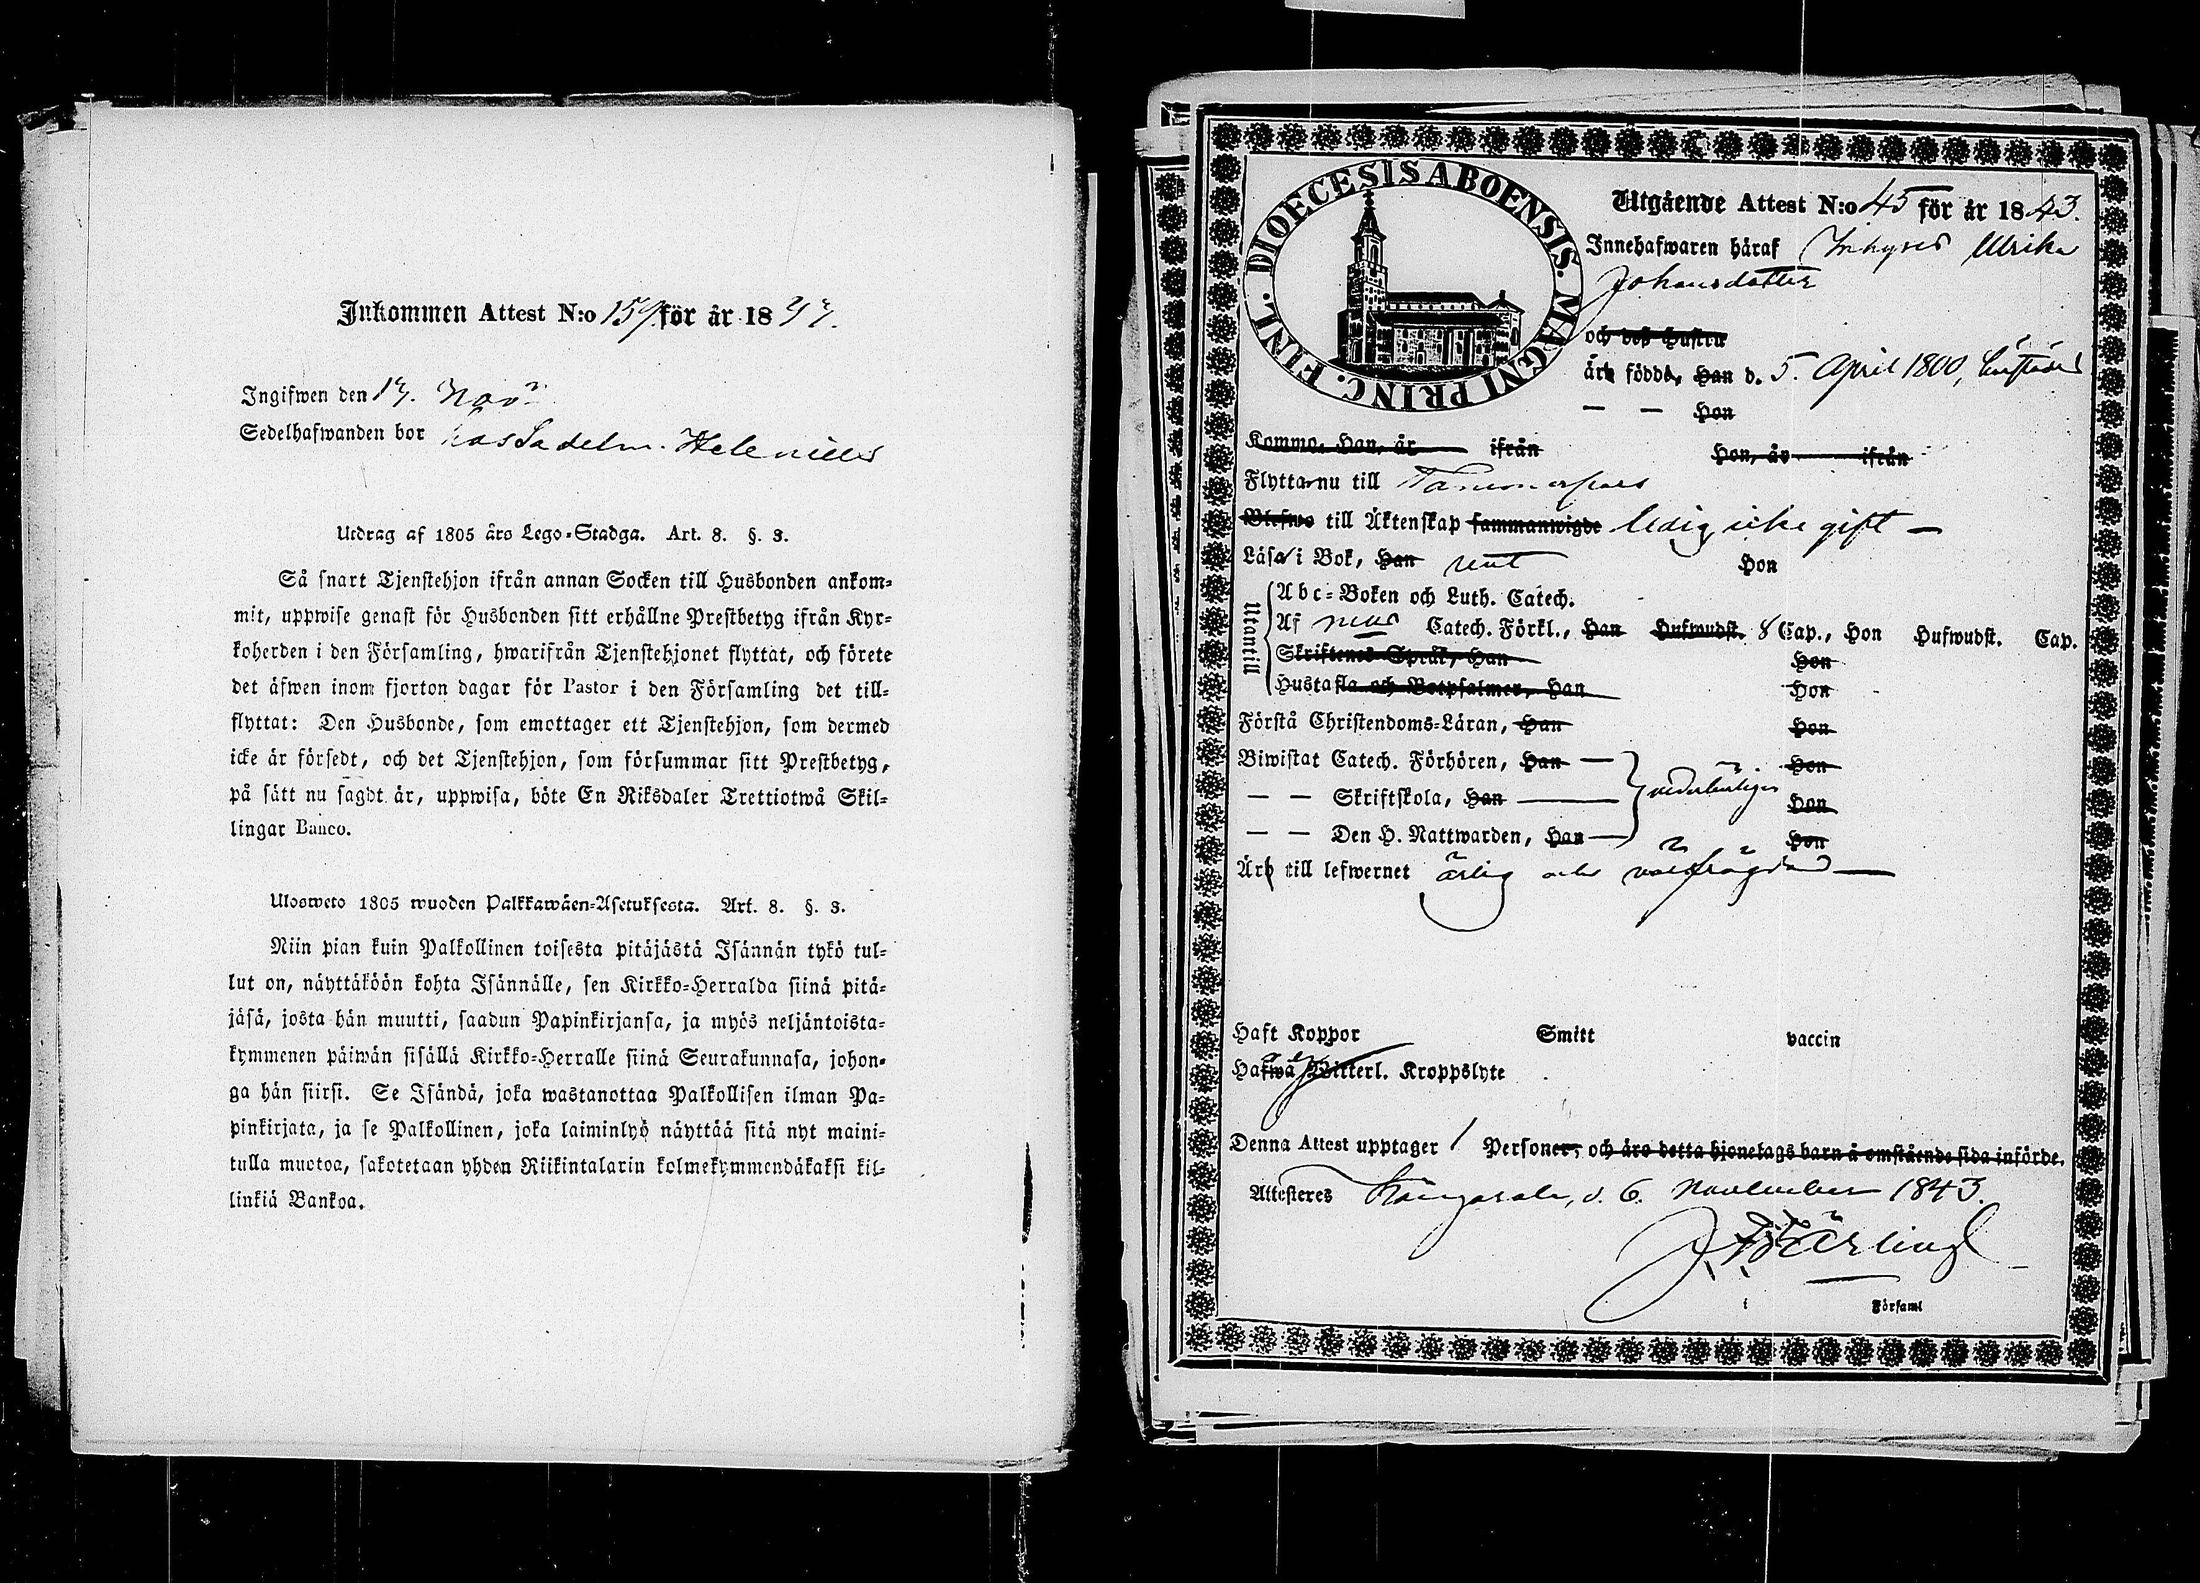 Inkommen Attest N:o 159 för år 18
Ingifwen den 17. Nov.
Sedelhafwanden bor hos Sadelm. Helenius
Utdrag af 1805 års Lego-Stadga. Art. 8. §. 3.
Så snart Tjenstehjon ifrån annan Socken till Husbonden ankom-
mit, uppwise genast för Husbonden sitt erhållne Prestbetyg ifrån Kyr-
koherden i den Församling, hwarifrån Tjenstehjonet flyttat, och förete
det äfwen inom fjorton dagar för Pastor i den Församling det till-
flyttat: Den Husbonde, som emottager ett Tjenstehjon, som dermed
icke är försedt, och det Tjenstehjon, som försummar sitt Prestbetyg,
på sätt nu sagdt är, uppwisa, böte En Riksdaler Trettiotwå Skil-
lingar Banco.
Ulosweto 1805 wuoden Palkkawäen-Asetuksesta. Art. 8. §. 3.
Niin pian kuin Palkollinen toisesta pitäjästä Isännän tykö tul-
lut on, näyttäköön kohta Isännälle, sen Kirkko-Herralda siinä pitä-
jäsä, josta hän muutti, saadun Papinkirjansa, ja myös neljäntoista-
kymmenen päiwän sisällä Kirkko-Herralle siinä Seurakunnasa, johon-
ga hän siirsi. Se Isändä, joka wastanottaa Palkollisen ilman Pa-
pinkirjata, ja se Palkollinen, joka laiminlyö näyttää sitä nyt maini-
tulla muotoa, sakotetaan yhden Riikintalarin kolmekymmendäkaksi kil-
linkiä Bankoa.
DIOECESIS ABOENSIS. MAGNI PRINC. FINL.
Utgående Attest N:o 45 för år 1843.
Innehafwaren häraf Inhyses Ulrika
Johansdotter
och deß hustru
äro födde, Han d. 5. April 1800,
— — Hon
Komma, Han, år ifrån Hon, år ifrån
Flytta nu till Tammerfors
Blefwo till Äktenskap sammanwigde ledig icke gift —
Läsa i Bok, Han rent Hon
Utantill
Abc-Boken och Luth. Catech.
Af Catech. Förkl., Han Hufwudst. 8 Cap., Hon Hufwudst. Cap.
Skriftenes Språk, Han Hon
Hustafla och Botpsalmer, Han Hon
Förstå Christendoms-Läran, Han Hon
Biwistat Catech. Förhören, Han — Hon
— — Skriftskola, Han vederbörligen Hon
— — Den H. Nattwarden, Han — Hon
Äro till lefwernet ärlig och välfrägdad —
Haft Koppor Smitt vaccin
Hafwa Witterl. Kroppslyte
Denna Attest upptager 1 Personer, och äro detta hjonelags barn å omstående sida införde.
Attesteres Kangasala, d. 6. November 1843.
i Församl